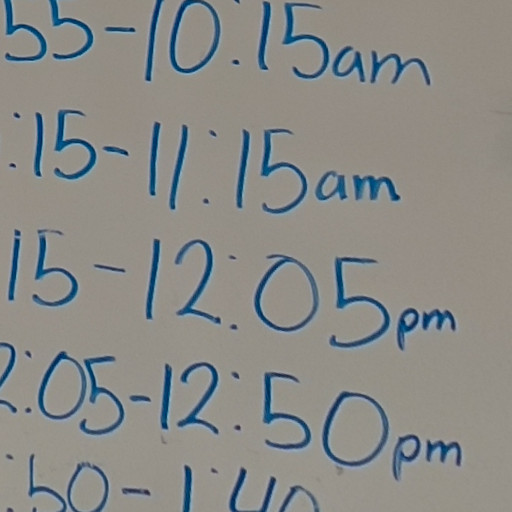 55-10:15am
:15-11:15am
15-12:05pm
2:05-12:50pm
:50-1:40